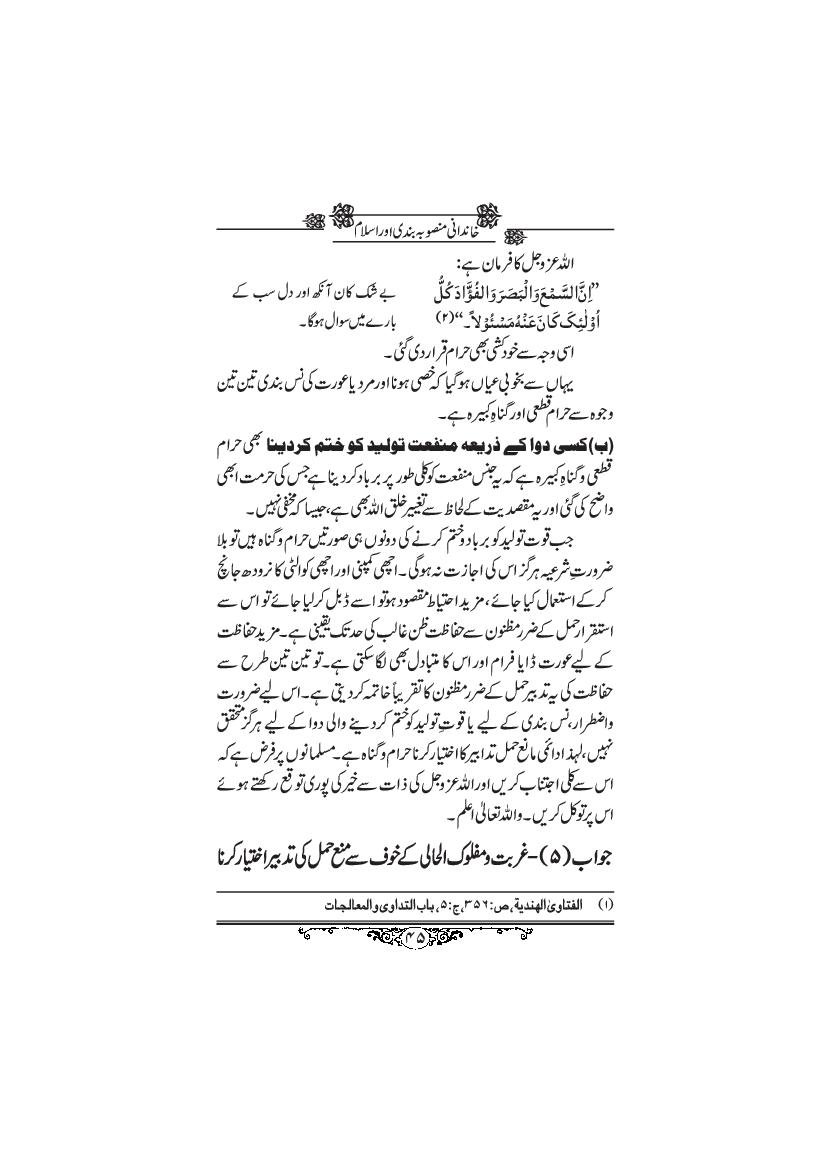 خاندانی منصوبہ بندی اور اسلام
اللہ عزوجل کا فرمان ہے:
”اِنَّ السَّمْعَ وَالْبَصَرَ وَالْفُؤَادَ كُلُّ بے شک کان آنکھ اور دل سب کے
اُوْلٰئِکَ کَانَ عَنْهُ مَسْئُوْلاً۔“(۲) بارے میں سوال ہوگا۔
اسی وجہ سے خودکشی بھی حرام قرار دی گئی۔
یہاں سے بخوبی عیاں ہوگیا کہ خصی ہونا اور مرد یا عورت کی نس بندی تین تین
وجوہ سے حرام قطعی اور گناہِ کبیرہ ہے۔
(ب) کسی دوا کے ذریعہ منفعت تولید کو ختم کردینا بھی حرام
قطعی و گناہِ کبیرہ ہے کہ یہ جنس منفعت کو کلی طور پر برباد کردینا ہے جس کی حرمت ابھی
واضح کی گئی اور یہ مقصدیت کے لحاظ سے تغییر خلق اللہ بھی ہے، جیسا کہ مخفی نہیں۔
جب قوت تولید کو برباد و ختم کرنے کی دونوں ہی صورتیں حرام و گناہ ہیں تو بلا
ضرورتِ شرعیہ ہرگز اس کی اجازت نہ ہوگی۔ اچھی کمپنی اور اچھی کوالٹی کا نرودھ جانچ
کر کے استعمال کیا جائے، مزید احتیاط مقصود ہو تو اسے ڈبل کرلیا جائے تو اس سے
استقرار حمل کے ضرر مظنون سے حفاظت ظن غالب کی حد تک یقینی ہے۔ مزید حفاظت
کے لیے عورت ڈایا فرام اور اس کا متبادل بھی لگا سکتی ہے۔ تو تین تین طرح سے
حفاظت کی یہ تدبیر حمل کے ضرر مظنون کا تقریباً خاتمہ کردیتی ہے۔ اس لیے ضرورت
واضطرار، نس بندی کے لیے یا قوتِ تولید کو ختم کردینے والی دوا کے لیے ہرگز متحقق
نہیں، لہذا دائمی مانع حمل تدابیر کا اختیار کرنا حرام و گناہ ہے۔ مسلمانوں پر فرض ہے کہ
اس سے کلی اجتناب کریں اور اللہ عزوجل کی ذات سے خیر کی پوری توقع رکھتے ہوئے
اس پر توکل کریں۔ واللہ تعالیٰ اعلم۔
جواب (۵)- غربت و مفلوک الحالی کے خوف سے منع حمل کی تدبیر اختیار کرنا
(۱) الفتاویٰ الهندیة، ص:۳۵۶، ج:۵، باب التداوی والمعالجات
۴۵